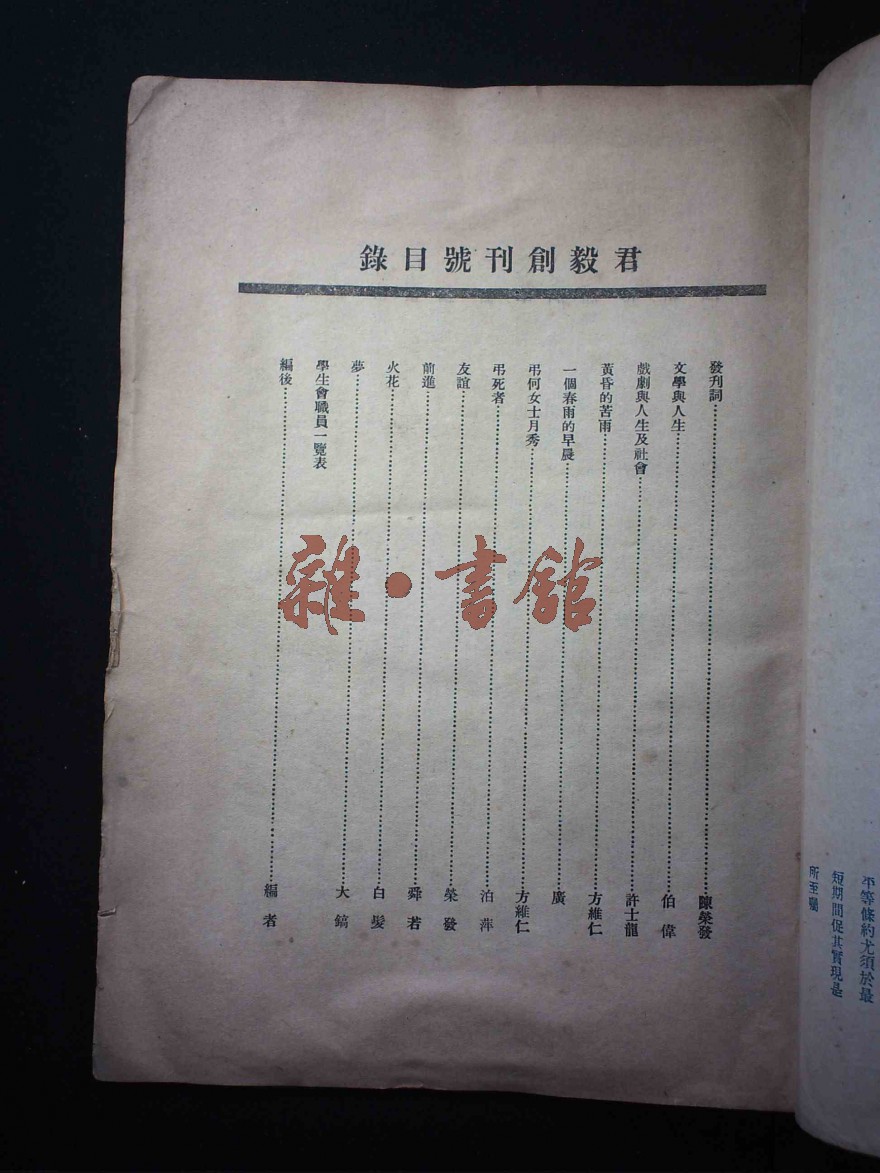 君毅創刊號目錄
發刊詞……陳榮發
文學與人生……伯偉
戲劇與人生及社會……許士龍
黃昏的苦雨……方維仁
一個春雨的早晨……廣
弔何女士月秀……方維仁
弔死者……泊萍
友誼……榮發
前進……舜若
火花……白髮
夢……大鎬
學生會職員一覽表
編後……編者
雜·書館
平等條約尤須於最
短期間促其實現是
所至囑